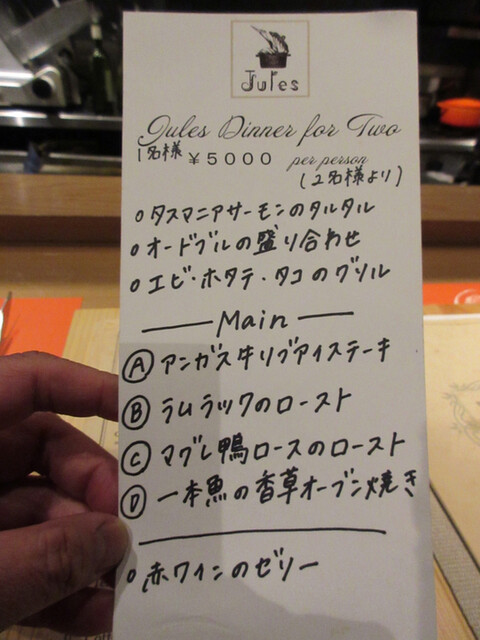 Jules
Jules Dinner for Two
1名様 ¥5000 per person
(2名様より)
○タスマニアサーモンのタルタル
○オードブルの盛り合わせ
○エビ・ホタテ・タコのグリル
Main
Ⓐ アンガス牛リブアイステーキ
Ⓑ ラムラックのロースト
Ⓒ マグレ鴨ロースのロースト
Ⓓ 一本魚の香草オーブン焼き
○赤ワインのゼリー